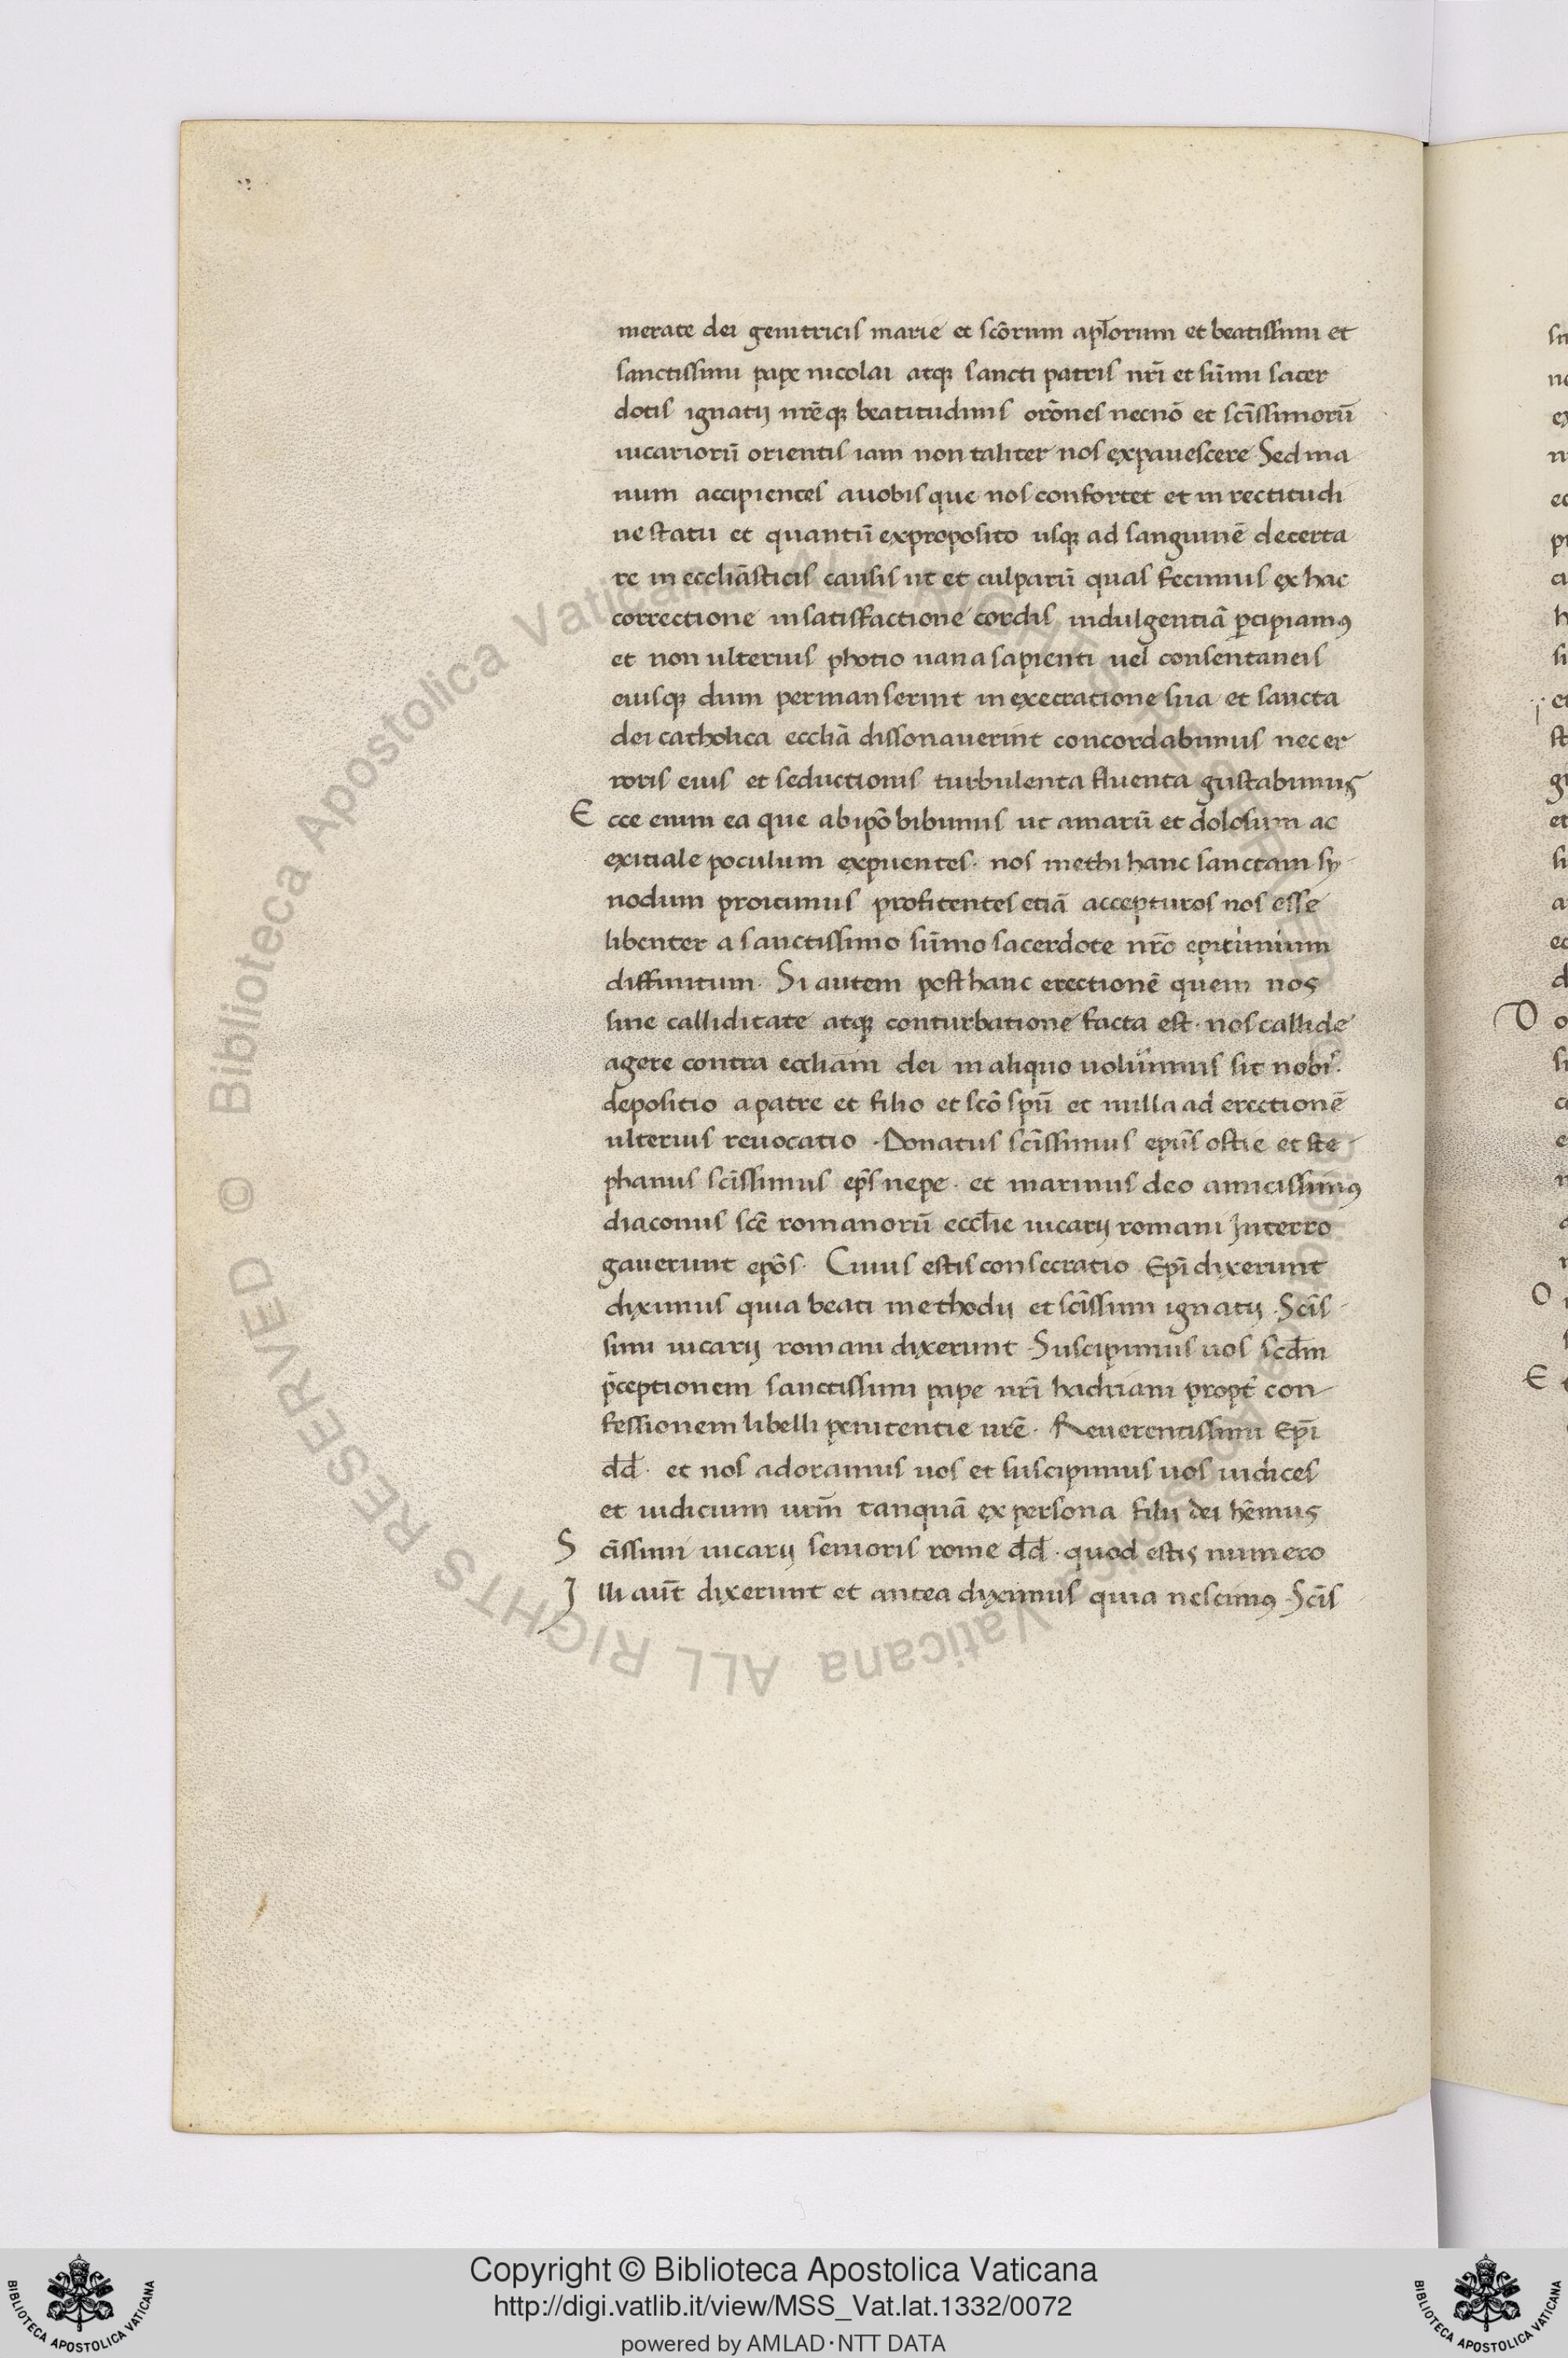 merate dei genitricis marie et scōrum apl̄orum et beatissimi et
sanctissimi pape nicolai atq; sancti patris nr̄i et sūmi sacer
dotis ignatij nrēq; beatitudinis orōnes necnō et scīssimorū
uicariorū orientis iam non taliter nos expauescere Sed ma
num accipientes auobis que nos confortet et in rectitudi
ne statu et quantū exproposito usq; ad sanguinē decerta
re in eccliāsticis causis ut et culparū quas fecimus ex hac
correctione insatisfactione cordis indulgentiā ꝑcipiamꝰ
et non ulterius photio uana sapienti uel consentaneis
eiusq; dum permanserint in execratione sua et sancta
dei catholica eccliā dissonauerint concordabimus nec er
roris eius et seductionis turbulenta fluenta gustabimus
E cce enim ea que ab ip̄o bibimus ut amarū et dolosum ac
exitiale poculum expuentes· nos methi hanc sanctam sy
nodum proicimus profitentes etiā accepturos nos esse
libenter a sanctissimo sūmo sacerdote nr̄o epitimium
diffinitum· Si autem post hanc erectionē quem nos
sine calliditate atq; conturbatione facta est· nos callide
agere contra eccliam dei in aliquo uoluimus sit nobis·
depositio a patre et filio et scō spū et nulla ad erectionē
ulterius reuocatio · Donatus scīssimus epūs ostie et ste
phanus scīssimus ep̄s nepe· et marinus deo amicissimꝰ
diaconus scē romanorū eccl̄ie uicarij romani Jnterro
gauerunt ep̄os· Cuius estis consecratio Ep̄i dixerunt
diximus quia beati methodij et scīssimi ignatij ·Scīs
simi uicarij romani dixerunt ·Suscipimus uos scd̄m
p̄ceptionem sanctissimi pape nr̄i hadriani propt̄ con
fessionem libelli penitentie ur̄e· Reuerentissimi Ep̄i
dd̄· et nos adoramus uos et suscipimus uos iudices
et iudicium ur̄m tanquā ex persona filij dei hēmus
S cīssimi uicarij senioris rome dd̄ · quod estis numero
J lli aūt dixerunt et antea diximus quia nescimꝰ ·Scīs
Copyright © Biblioteca Apostolica Vaticana
http://digi.vatlib.it/view/MSS_Vat.lat.1332/0072
powered by AMLAD·NTT DATA